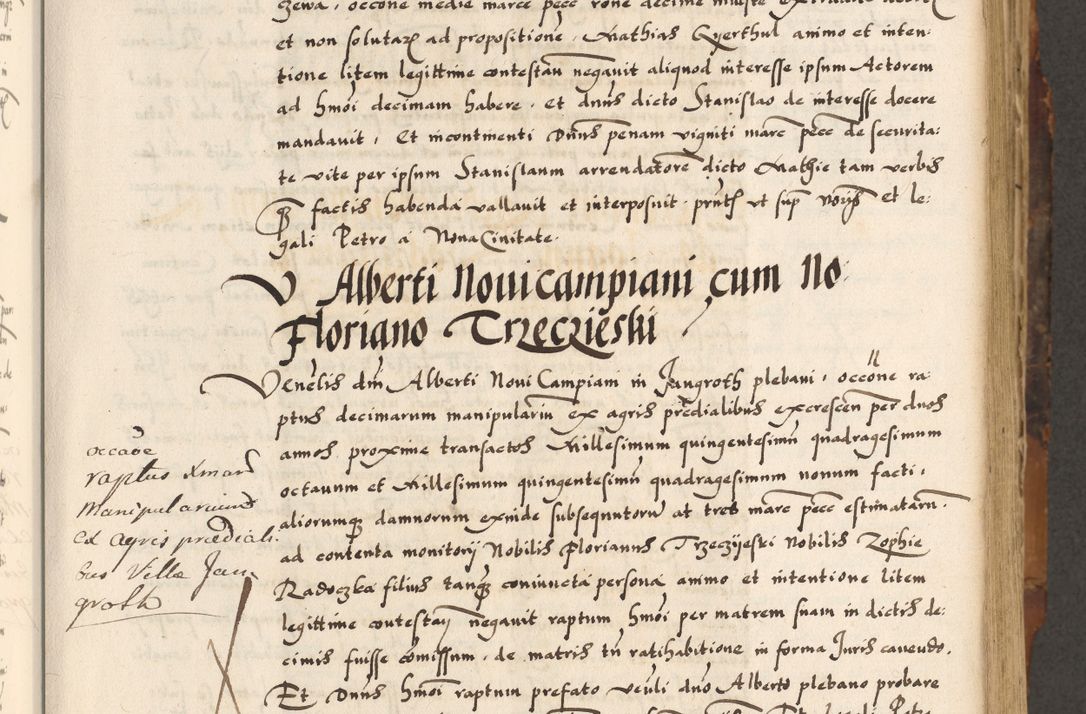 et non solutar ad propositione, Mathias Gyerthul animo et inten:
tione litem legittime contestan negavit aliquod interesse ipsum Actorem
ad hmoi decimam habere. et dnus dicto Stanislao de interesse docere
mandavit, Et incontinenti Dnus penam viginti marc pecc de securita:
te vite per ipsum Stanislaum arrendatore dicto Mathie tam verbis
factis habenda vallavit et interposuit. prntz vt sup Noris et le:
gali Petro a Nova Civitate.
V Alberti Novicampiani cum No:
Floriano Trzeczieski
Venelis dni Alberti Novi Campiani in Jangroth plebani, occone ra
ptus decimarum manipularium ex agris predialibus excrescen per duos
annos proxime transactos Millesimum quingentesimu quadragesimum
octavum et Millesimum quingentesimu quadragesimum nonum facti,
aliorumq damnorum exinde subsequutoru at tres marc pecc estimatarum
ad contenta monitorij Nobilis Florianus Trzeczijeski Nobilis Zophie
Radoczka filius tanq coniuncta persona animo et intentione litem
legittime contestan negavit raptum hmoi per matrem suam in dictis de:
cimis fuisse comissum. de matris tn ratihabitione in forma Juris cavendo.
Et Dnus hmoi raptum prefato veneli dno Alberto plebano probare
occaoe
raptus Xmarum
Manipularium
ex agris prædiali
bus Villæ Jan
groth